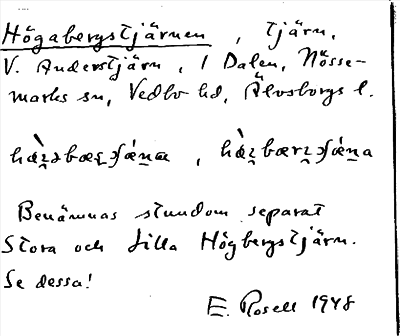 Högabergstjärnen, tjärn,
V. Anderstjärn, i Dalen, Nösse-
marks sn, Vedbo hd, Älvsborgs l.
Benämnas stundom separat
Stora och Lilla Högbergstjärn.
Se dessa!
E. Rosell 1948